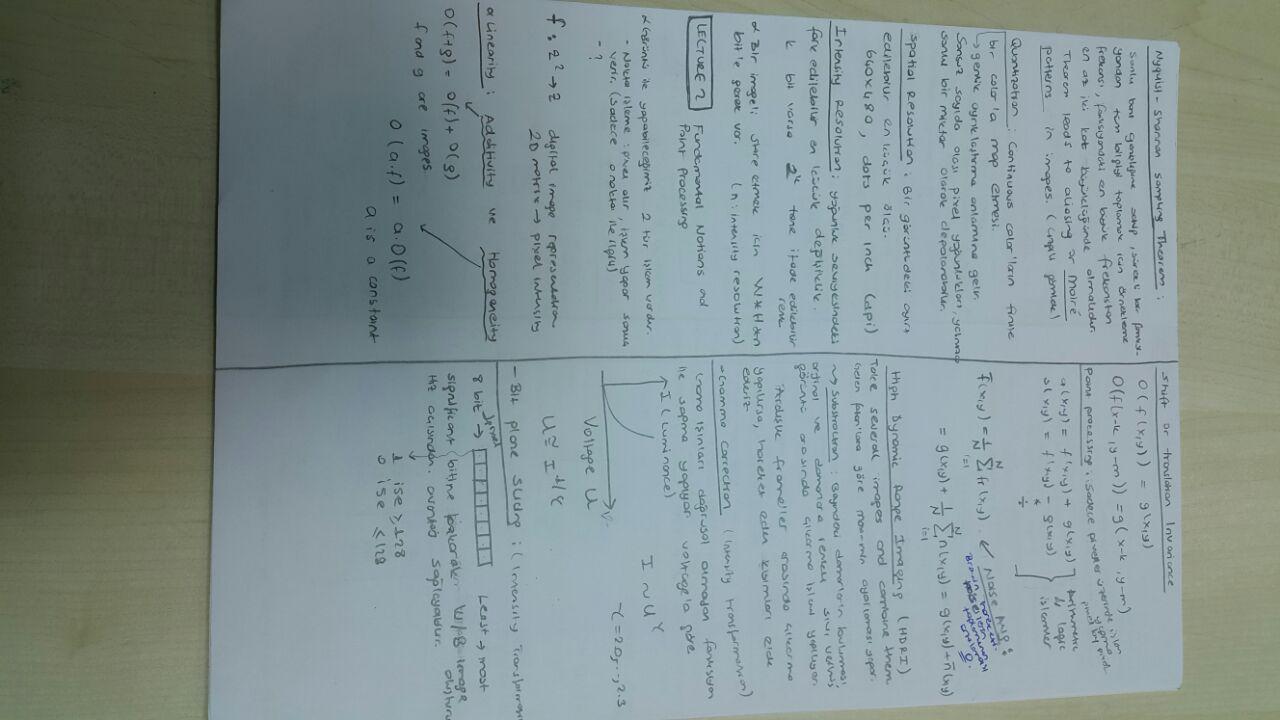 Nyquist - Shannon Sampling Theorem :
Sonlu bant genişliğine sahip, sürekli bir fonksi-
yondan tüm bilgiyi toplamak için örnekleme
frekansı, fonksiyondaki en büyük frekanstan
en az iki kat büyüklüğünde olmalıdır.
Theorem leads to aliasing or Moiré
patterns in images. (çizgili gömlek)
Quantization : Continuous color'ların finite
bir color'a map etmesi.
↳ genlik ayrıklaştırma anlamına gelir.
Sonsuz sayıda olası pixel yoğunlukları, yalnızca
sonlu bir miktar olarak depolanabilir.
Spatial Resolution : Bir görüntüdeki ayırt
edilebilir en küçük ölçü.
640x480, dots per inch (dpi)
Intensity Resolution : yoğunluk seviyesindeki
fark edilebilir en küçük değişiklik.
k bit varsa 2^k tane ifade edilebilir
renk
α Bir image'i store etmek için W*H*n
bit'e gerek var. (n: intensity resolution)
LECTURE 2 Fundamental Notions and
Point Processing
α Görüntü ile yapabileceğimiz 2 tür işlem vardır.
- Nokta işleme : pixel alır, işlem yapar sonuç
verir. (Sadece o nokta ile ilgili)
- ?
f : z² → z digital image representation
2D matrix → pixel intensity
α Linearity : Additivity ve Homogeneity
O(f+g) = O(f) + O(g)
f and g are images.
O(a.f) = a.O(f)
a is a constant
Shift or translation Invariance
O(f(x,y)) = g(x,y)
O(f(x-k, y-m)) = g(x-k, y-m)
Point processing : Sadece pixeller üzerinde işlem
yapma
pixel by pixel
a(x,y) = f(x,y) + g(x,y)
s(x,y) = f(x,y) - g(x,y)
*
÷
Arithmetic
& logic
işlemler
f̄(x,y) = 1/N Σ_{i=1}^{N} fi(x,y) ↙ Noise Avg :
= g(x,y) + 1/N Σ_{i=1}^{N} n(x,y) = g(x,y) + n̄(x,y)
High Dynamic Range Imaging (HDRI)
Take several images and combine them.
Gelen foton'lara göre max-min ayarlaması yapar.
⤳ Substraction : Beyindeki damarların bulunması
orjinal ve damarlara renkli sıvı verilmiş
görüntü arasında çıkarma işlemi yapılıyor.
Ardışık frameller arasında çıkarma
yapılırsa, hareket eden kısımları elde
ederiz
- Gamma Correction (Intensity transformation)
Gama ışınları doğrusal olmayan fonksiyon
ile sapma yapıyor voltage'a göre
I (Luminance)
I ~ U^γ
γ = 2.0,..,2.3
Voltage U
U ≅ I^1/γ
- Bit plane Slicing : (Intensity Transformation
8 bit → Least → most
significant bitine bakarak W/B image oluşturu
Hız açısından avantaj sağlayabilir.
1 ise ≥128
0 ise ≤128